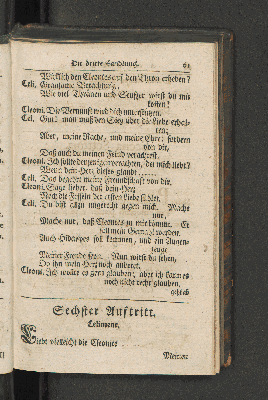 Die dritte Handlung. 61
Wirst du den Cleontes auf den Thron erheben?
Celi. Grausame Verachtung.
Wie viel Thränen und Seufzer wirst du mir
kosten!
Cleoni. Die Vernunft wird dich unterstützen.
Cel. Gut! man muß den Sieg über die Liebe erhal-
ten;
Aber, meine Rache, und meine Ehre fordern
von dir,
Daß auch du meinen Feind verachtest.
Cleoni. Ich sollte den verachten, der mich liebt?
Wenn dein Herz dieses glaubt
Celi. Das begehrt meine Freundschaft von dir.
Cleoni. Sage lieber, daß dein Herz
Noch die Fesseln der ersten Liebe fühlet.
Celi. Du bist allzu ungerecht gegen mich. Mache
nur,
Mache nur, daß Cleontes zu mir komme. Er
soll mein Gemahl werden.
Auch Hidaspes soll kommen, und ein Augen-
zeuge
Meiner Freude seyn. Nun wirst du sehen,
Ob ihn mein Herz noch anbetet.
Cleoni. Ich wollte es gern glauben; aber ich kann es
noch nicht recht glauben.
geht ab
Sechster Auftritt.
Celimene.
Liebt vielleicht die Cleonice
Meinen